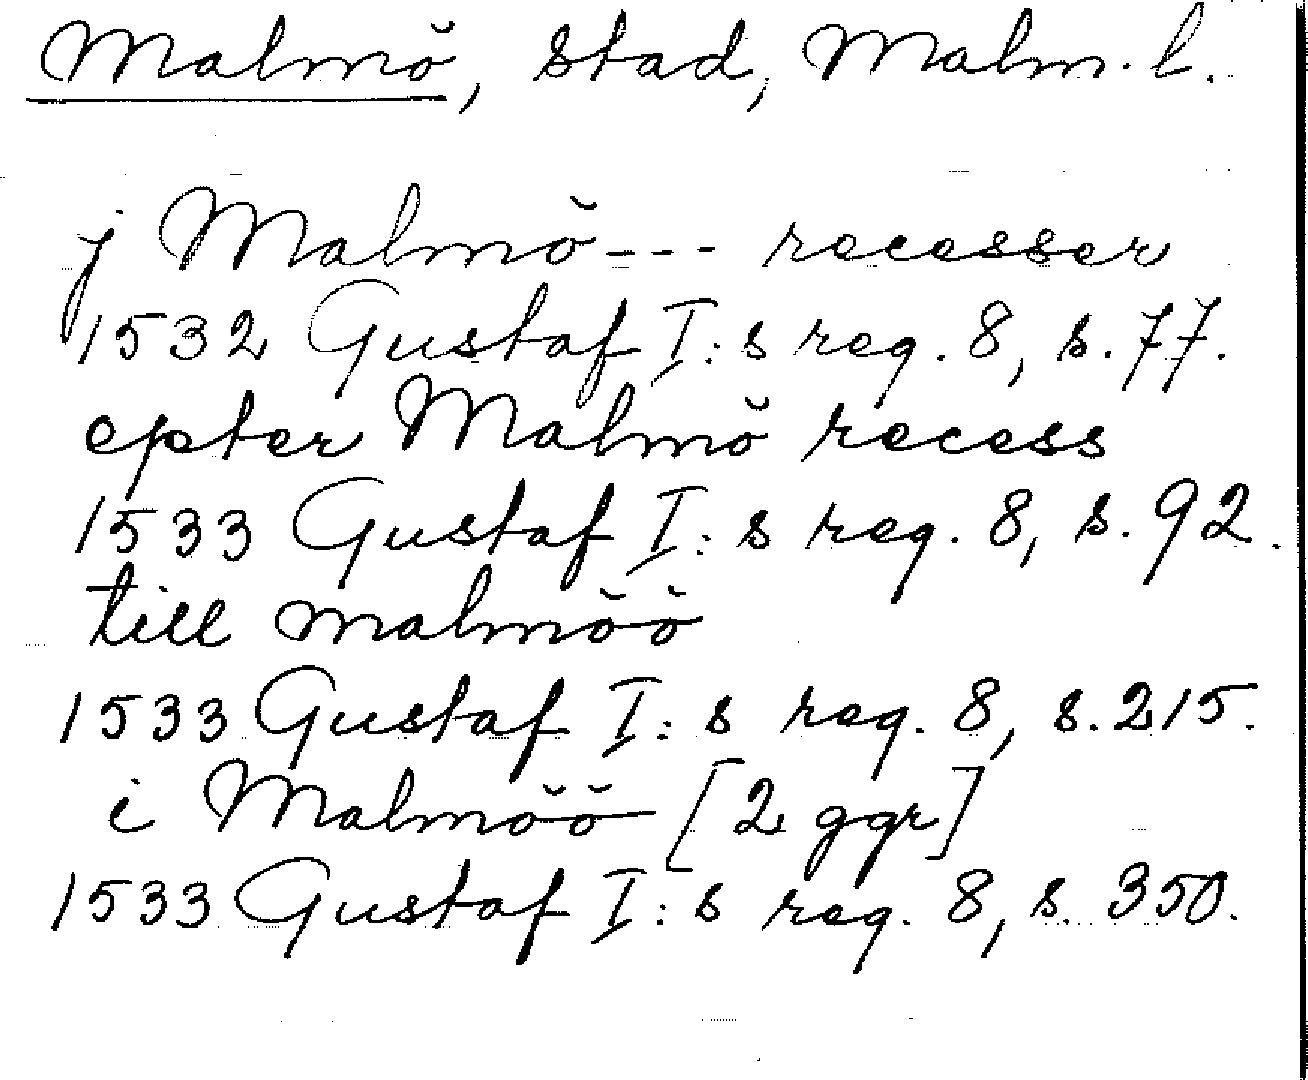 Malmö, stad, Malm. l.
j Malmö --- recesser
1532 Gustaf I:s reg. 8, s. 77.
epter Malmö recess
1533 Gustaf I:s reg. 8, s. 92.
till malmöö
1533 Gustaf I:s reg. 8, s. 215.
i Malmöö [2 ggr]
1533 Gustaf I:s reg. 8, s. 350.